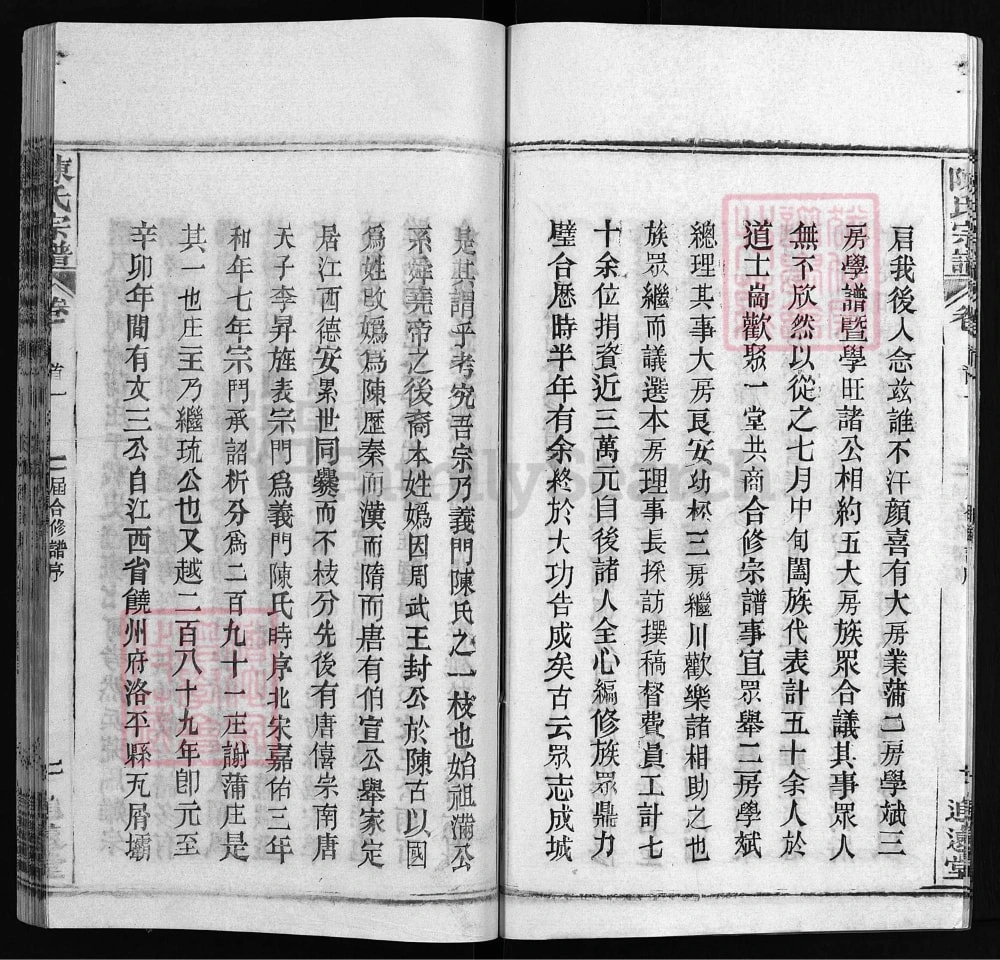 肩我後人念兹誰不汗顔喜有大房業蒲二房學斌三
房學譜暨學旺諸公相約五大房族眾合議其事眾人
無不欣然以從之七月中旬闔族代表計五十余人於
道士崗歡聚一堂共商合修宗譜事宜眾舉二房學斌
總理其事大房良安功杯三房繼川歡樂諸相助之也
族眾繼而議選本房理事長採訪撰稿督費員工計七
十余位捐資近三萬元自後諸人全心編修族眾鼎力
璧合歷時半年有余終於大功告成矣古云眾志成城
陳氏宗譜
卷
追遠堂
是其謂乎考究吾宗乃義門陳氏之一枝也始祖滿公
系舜堯帝之後裔本姓嬀因周武王封公於陳古以國
爲姓改嬀爲陳歷秦而漢而隋而唐有伯宣公舉家定
居江西德安累世同爨而不枝分先後有唐僖宗南唐
天子李昇旌表宗門爲義門陳氏時序北宋嘉佑三年
和年七年宗門承詔析分爲二百九十一庄謝蒲庄是
其一也庄王乃繼琉公也又越二百八十九年卽元至
辛卯年間有友三公自江西省饒州府洛平縣瓦屑壩
陳氏宗譜
卷
首一
七屆合修譜序
二
FamilySearch